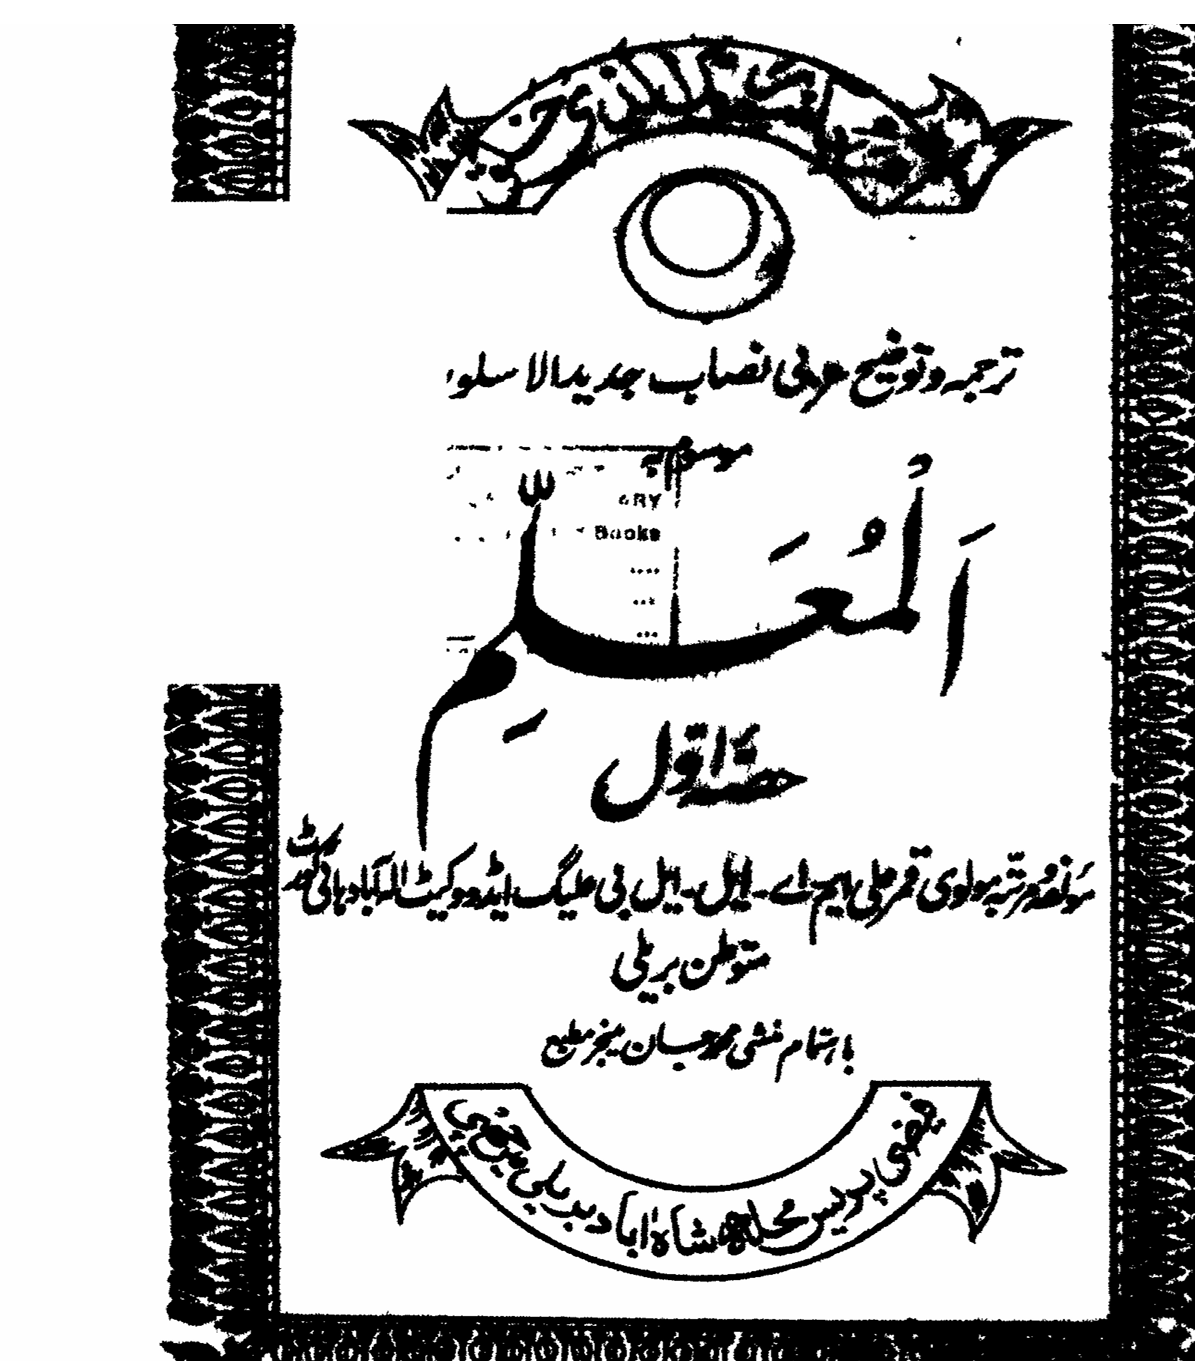 ترجمہ و توضیح عربی نصاب جدید الاسلو
موسوم بہ
ARY
Books
اَلْمُعَلِّم
حصّہ اوّل
مؤلفہ و مرتبہ مولوی قمر علی ایم اے ۔ ایل ۔ ایل بی علیگ ایڈووکیٹ الہ آباد ہائی کورٹ
متوطن بریلی
باہتمام منشی محمد حسان منیجر مطبع
فیضی پریس محلہ شاہ آباد بریلی میں چھپی